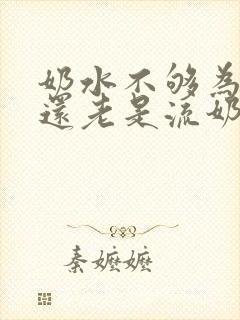 奶水不够為
還老是流奶
秦嬷嬷